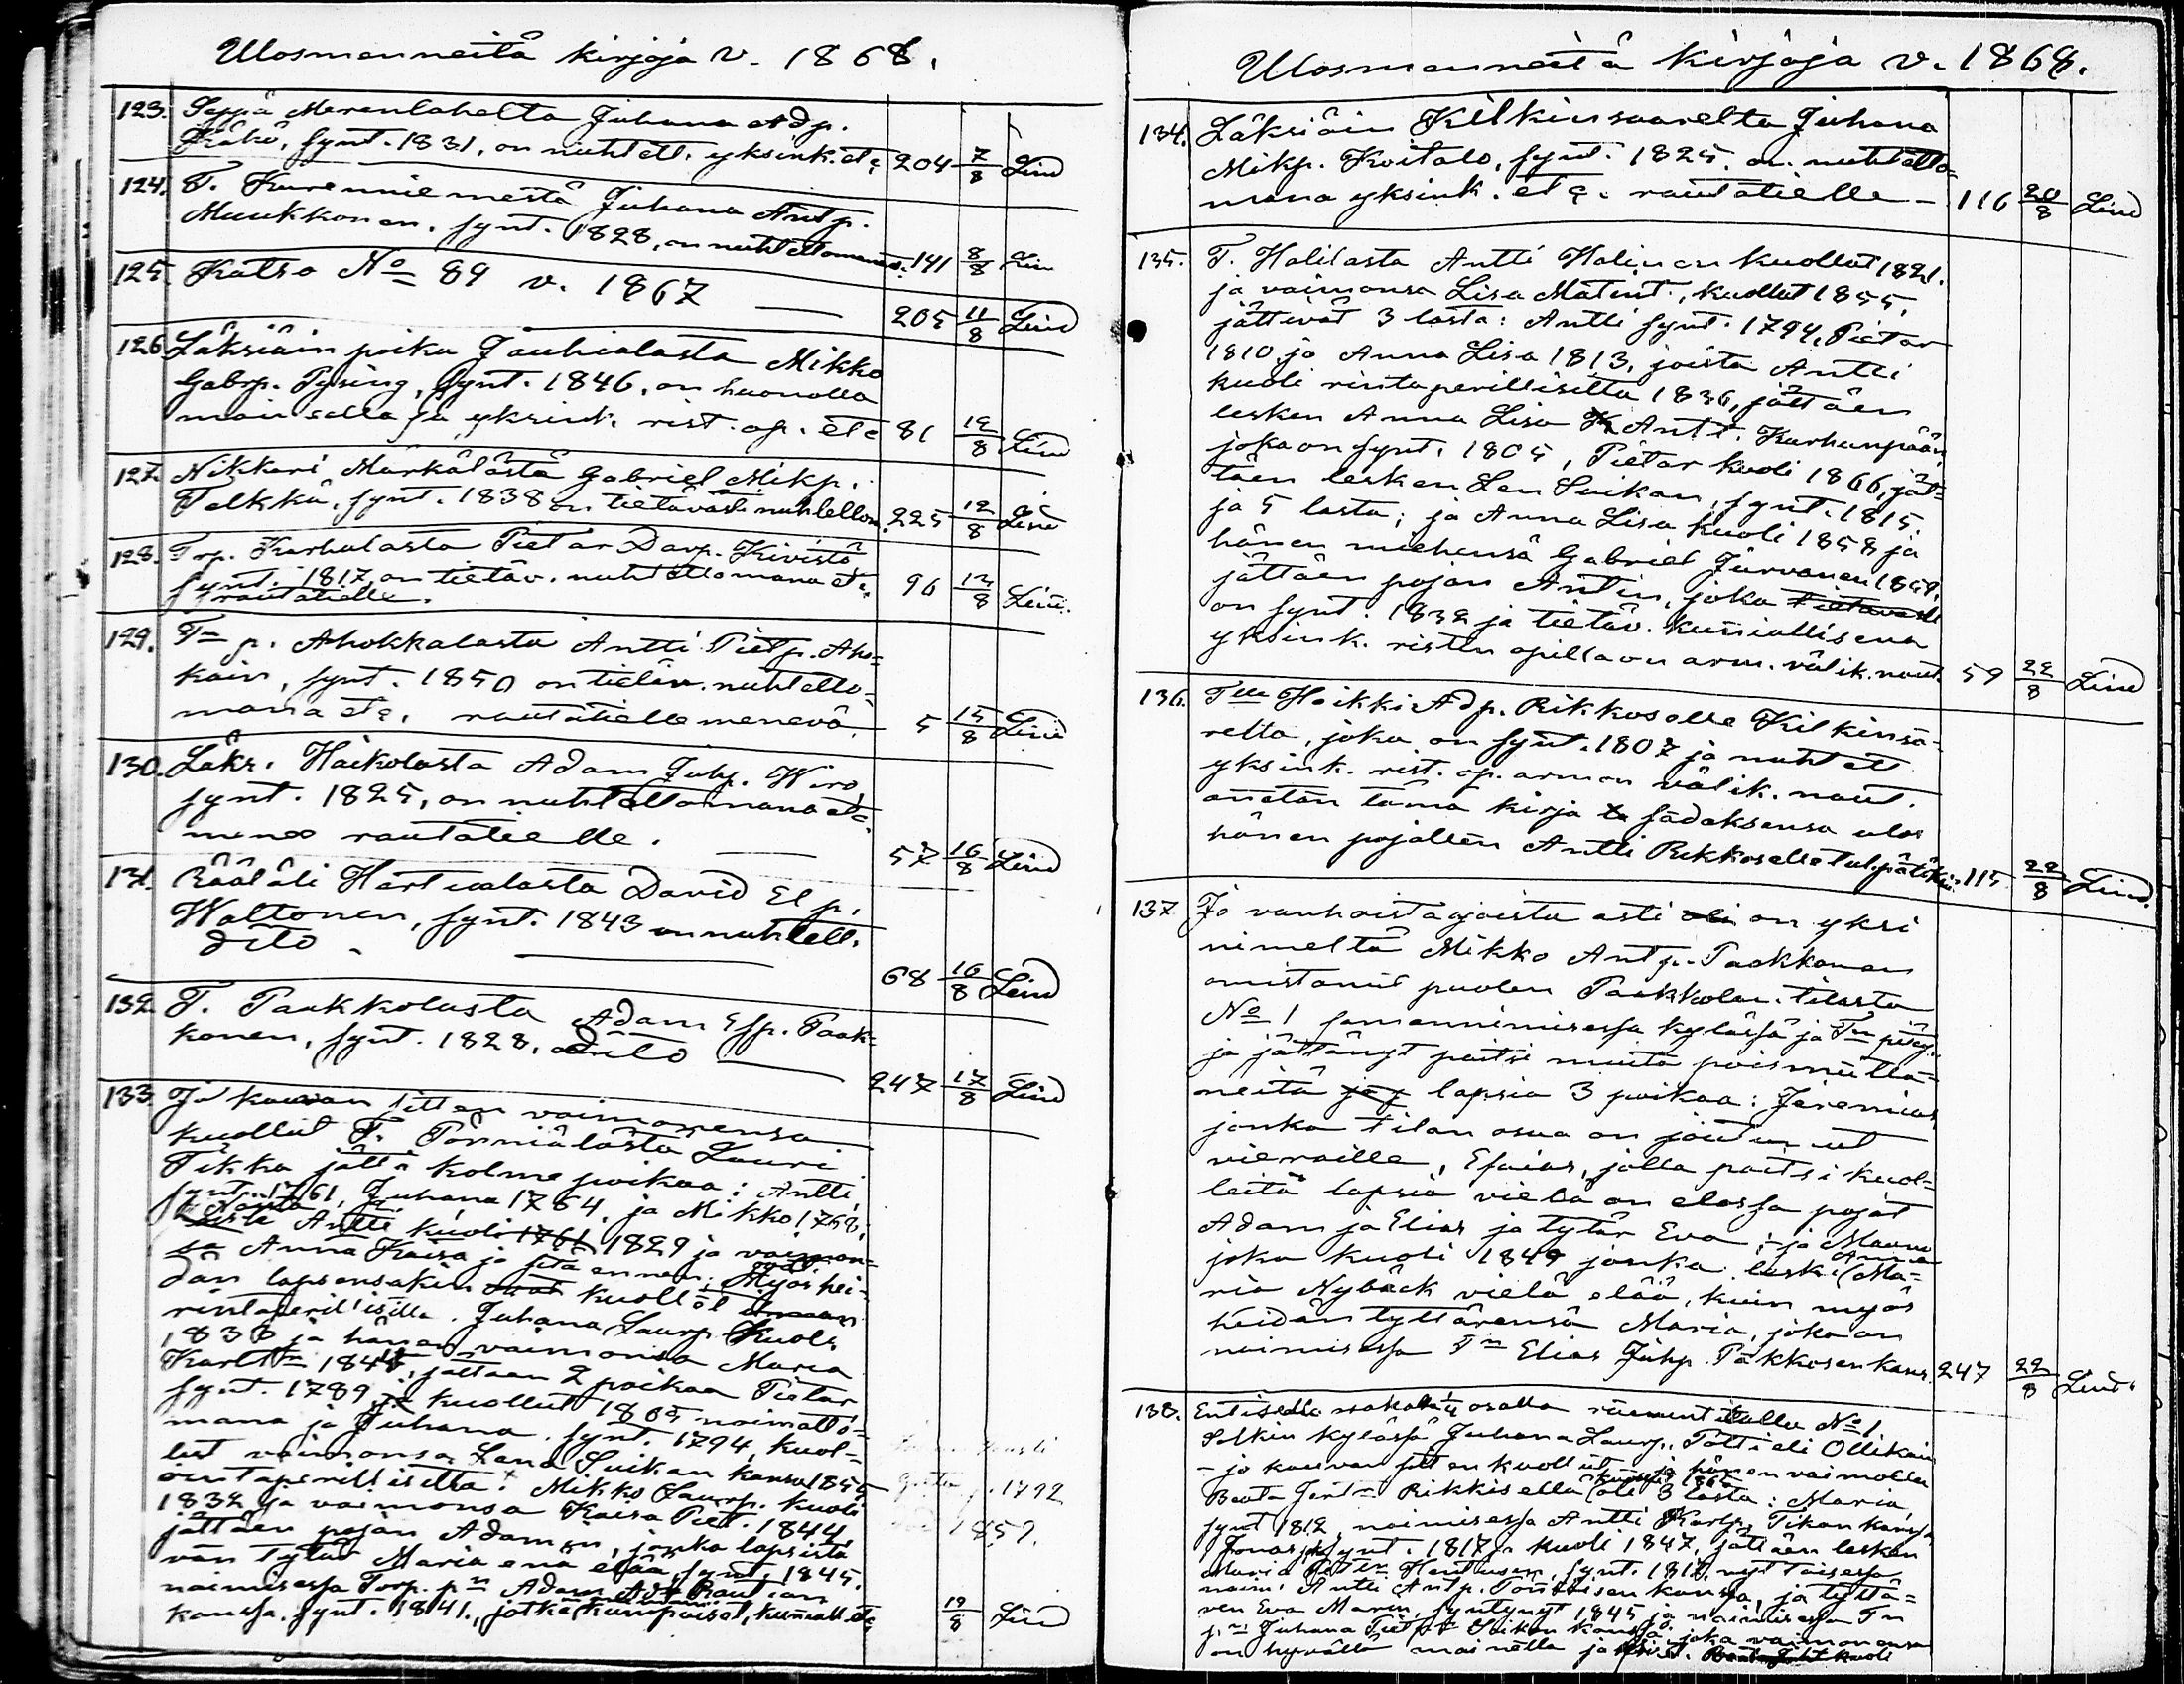 Ulosmenneitä kirjoja v. 1868.
123. Seppä Merenlahelta Juhana Adp.
Kähö, synt. 1831, on nuhtett. yksink. etc 204 7/8 Lind
124. T. Kurenniemestä Juhana Antp.
Muukkonen, synt. 1828, on nuhtettomana. 141 8/8 Lin
125. Katso No 89 v. 1867 205 11/8 Lind
126. Läksiäin poika Jauhialasta Mikko
Gabrp. Pysing, synt. 1846, on huonolla
mainealla ja yksink. rist. op. etc 81 12/8 Lind
127. Nikkari Märkälästä Gabriel Mikp.
Telkkä, synt. 1838 on tietävästi nuhtettom. 225 12/8 Lind
128. Torp. Karhulasta Pietar Davp. Kivistö
synt. 1817, on tietäv. nuhtettomana etc. 96 13/8 Lind.
rautatielle.
129. Tn p. Ahokkalasta Antti Pietp. Aho=
kain, synt. 1850 on tietäv. nuhtetto-
mana etc. rautatielle menevä. 5 15/8 Lind
130. Läks. Häikolasta Adam Juhp. Wiro,
synt. 1825, on nuhtettomana etc.
menee rautatielle. 57 16/8 Lind
131. Räätäli Härtualasta David El p.
Waltonen, synt. 1843 on nuhtett.
dito 68 16/8 Lind
132. T. Paakkolasta Adam Esp. Paak=
konen, synt. 1828. dito 247 17/8 Lind
133. Jo kauvan sitten vaimonensa
kuollut T. Pönniälästä Lauri
Tikka jätti kolme poikaa: Antti,
synt. 1761, Juhana 1764, ja Mikko 1768;
Näistä Antti kuoli 1761 1829 ja vaimon=
sa Anna Kaisa jo sitä ennen; Myös hei-
dän lapsensakin ovat kuollet ilman
rintaperillisillä. Juhana Laurp. kuoli
1838 ja hänen vaimonsa Maria
Karlstn 1848, jättäen 2 poikaa Pietar
synt. 1789, ja kuollut 1865 naimatto=
mana ja Juhana, synt. 1794, kuol=
lut vaimonsa Lena Suikan kanssa 1855
rintaperillisettä: Mikko Laurp. kuoli 1792
1832 ja vaimonsa Kaisa Piet. 1844, 1859.
jättäen pojan Adamin, jonka lapsista
vän tytär Maria ena elää, synt. 1845.
naimisessa Torp. pn Adam Adp Rautian
kanssa, synt. 1841., jotka kumpaiset, kunniall. etc 19/8 Lind
Ulosmenneitä kirjoja v. 1868.
134. Läksiäin Kilkinsaarelta Juhana
Mikp. Koitalo, synt. 1825. on nuhtetto=
mana yksink. etc. rautatielle 116 20/8 Lind
135. T. Halilasta Antti Halinen kuollut 1821.
ja vaimonsa Lisa Matint., kuollut 1855,
jättivät 3 lasta: Antti synt. 1794, Pietar
1810, ja Anna Lisa 1813, joista Antti
kuoli rintaperillisettä 1836, jättäen
lesken Anna Lisa K Antt. Karhunpään,
joka on synt. 1805, Pietar kuoli 1866, jät=
täen lesken Len Suikan, synt. 1815,
ja 5 lasta; ja Anna Lisa kuoli 1858 ja
hänen miehensä Gabriel Järvanen 1859,
jättäen pojan Antin, joka tietäväst
on synt. 1832 ja tietäv. kuniallisena
yksink. ristin opilla on arm. välik. naut. 59 22/8 Lind
136. Tlle Heikki Adp. Rikkoselle Kilkinsa-
relta, joka on synt. 1807 ja nuhtett
yksink. rist. op. armon välik. naut.
annetan tämä kirja to sadaksensa ulos
hänen pojallen Antti Rikkoselle tul. päätökin 115 22/8 Lind.
137. Jo vanhoista ajoista asti oli on yksi
nimeltä Mikko Antp. Paakkonen
omistanut puolen Paakkolan tilasta
No 1 samannimisessä kylässä ja Tn pitäj.
ja jättänyt paitsi muita poismuitta=
neitä jo j lapsia 3 poikaa: Jeremias,
jonka tilan osa on joutunut
vieraille, Esaias, jolla paitsi kuol=
leitä lapsia vielä on elossa pojat
Adam ja Elias ja tytär Eva; ja Maunu
joka kuoli 1849 jonka leski (Anna Ma=
ria Nybäck vielä elää, kuin myös
heidän tyttärensä Maria, joka on
naimisessa Tn Elias Juhp. Pakkosen kans. 247 22/8 Lind.
138. Entisellä osalla tilalla No 1
Solkin kylässä Juhana Laurp. Pöltti eli Ollikain
jo kauvan sitten kuollut ja hänen vaimolla
Beata Rikkisellä oli 3 lasta: Maria,
synt 1812, naimisessa Antti Karlp. Tikan kanssa,
Jonas synt. 1817 ja kuoli 1847, jättäen lesken
Maria synt. 1817, nyt toisessa
naim. Antti Antp. kanssa, ja tyttä=
ren Eva Maria, syntynyt 1845 ja naimisessa Tn
p.n Juhana Suikan kanssa, joka vaimonensa
on hyvällä mainella ja kuoli